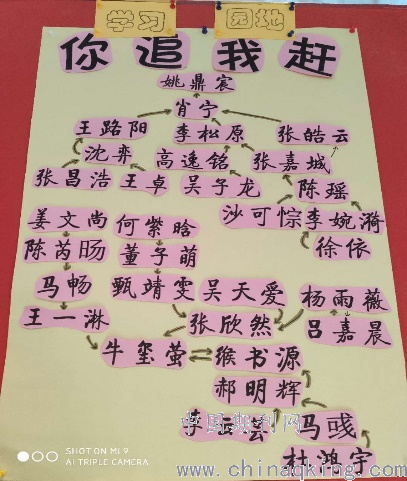 学习 园地
你追我赶
姚鼎宸
肖宁
王路阳 李松原 张皓云
沈弈 高逸铭 张嘉城
张昌浩 王卓 吴子龙 陈瑶
沙可悰 李婉漪
徐依
姜文尚 何紫晗
陈芮旸 董子萌
马畅 甄靖雯 吴天爱 杨雨薇
王一淋 张欣然 吕嘉晨
牛玺萤 缑书源
郝明辉
中国期刊网
马彧
杜鸿宇
www.chinaqking.com
SHOT ON MI 9
AI TRIPLE CAMERA